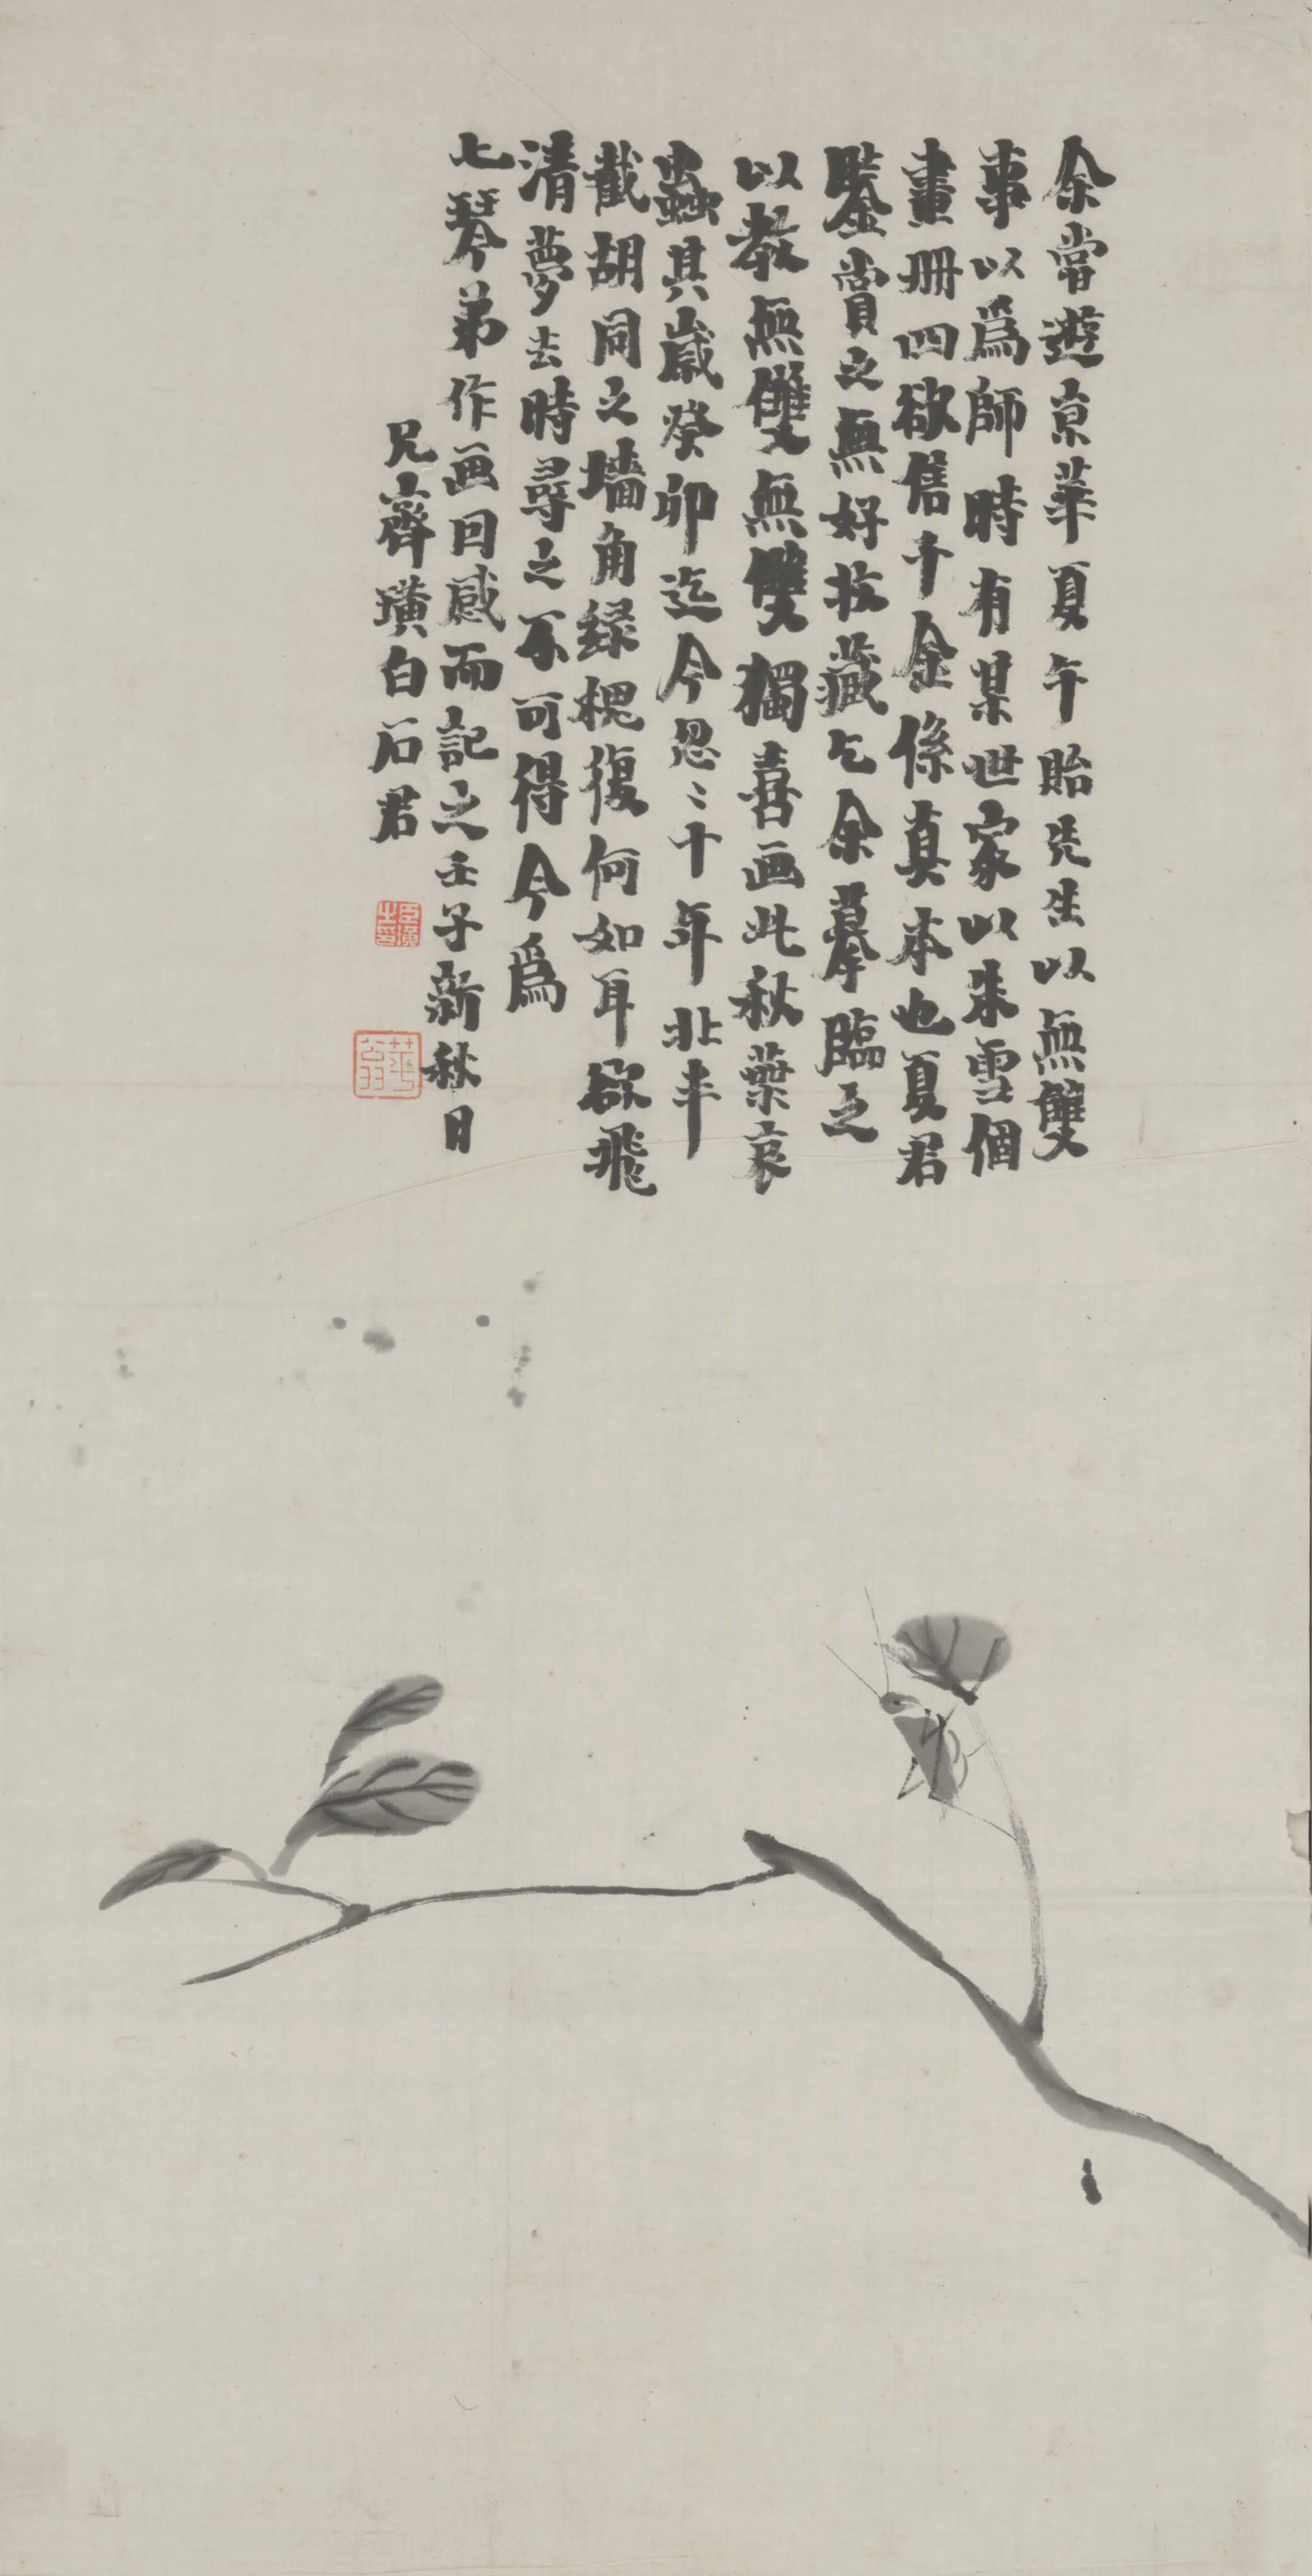 余嘗遊京華夏午貽先生以無雙
事以爲師時有某世家以朱雪個
畫册四欲售千金係真本也夏君
鑒賞之無好收藏乞余摹臨之
以教無雙無雙獨喜画此秋葉哀
蟲其歲癸卯迄今忽〻十年北半
截胡同之墻角緑槐復何如耳欲飛
清夢去時尋之不可得今爲
七琴弟作画回感而記之壬子新秋日
兄齊璜白石君
臣璜之印
萍翁